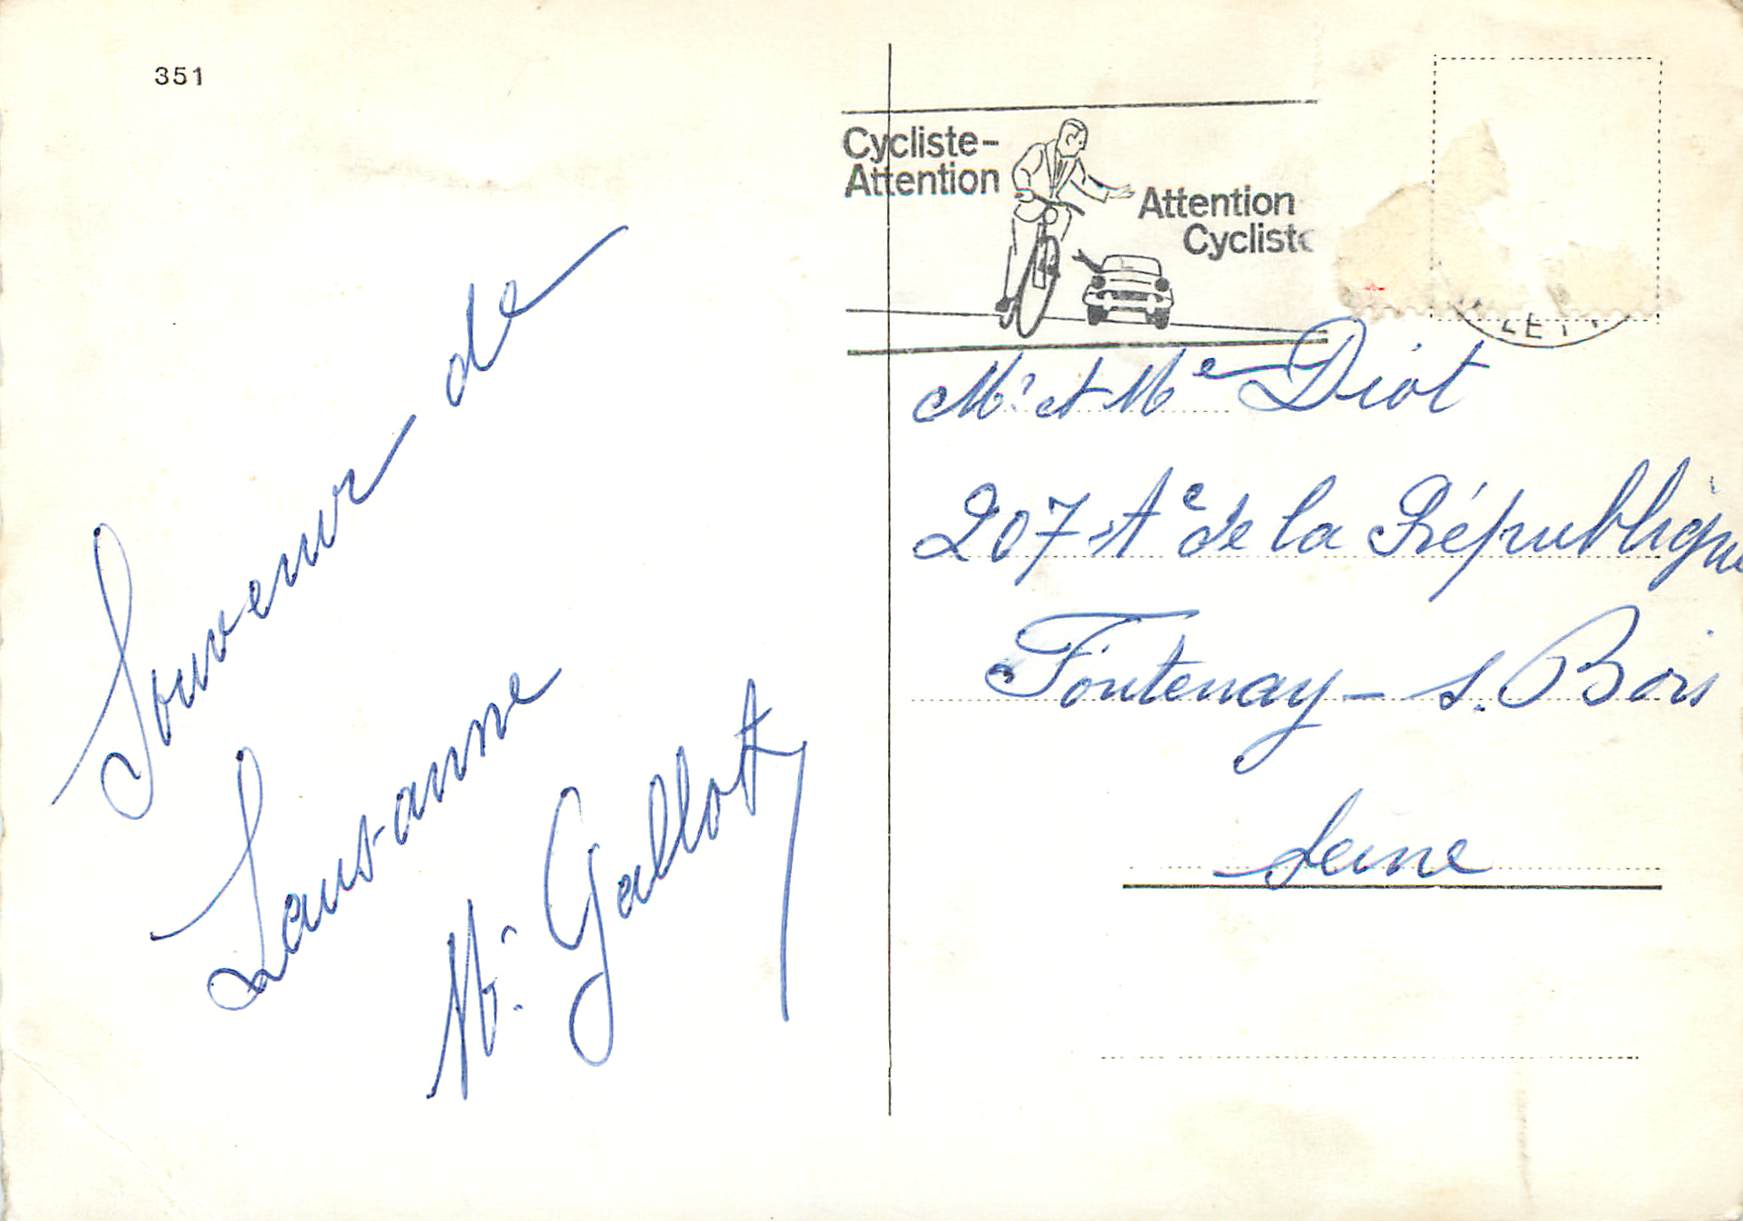 351
Cycliste-
Attention
Attention
Cycliste
Souvenir de
Lausanne
Mr Gallot
Mr et Me Diot
207 Ae de la République
Fontenay - s. Bois
Seine